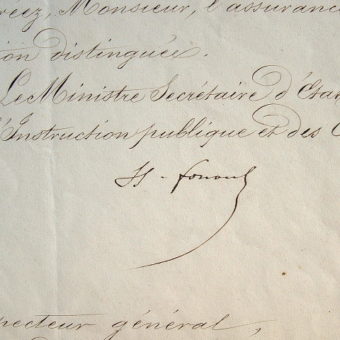 réez, Monsieur, l'assurance
ion distinguée.
Le Ministre Secrétaire d'Etat
l'Instruction publique et des C
H. Fortoul
pecteur général,